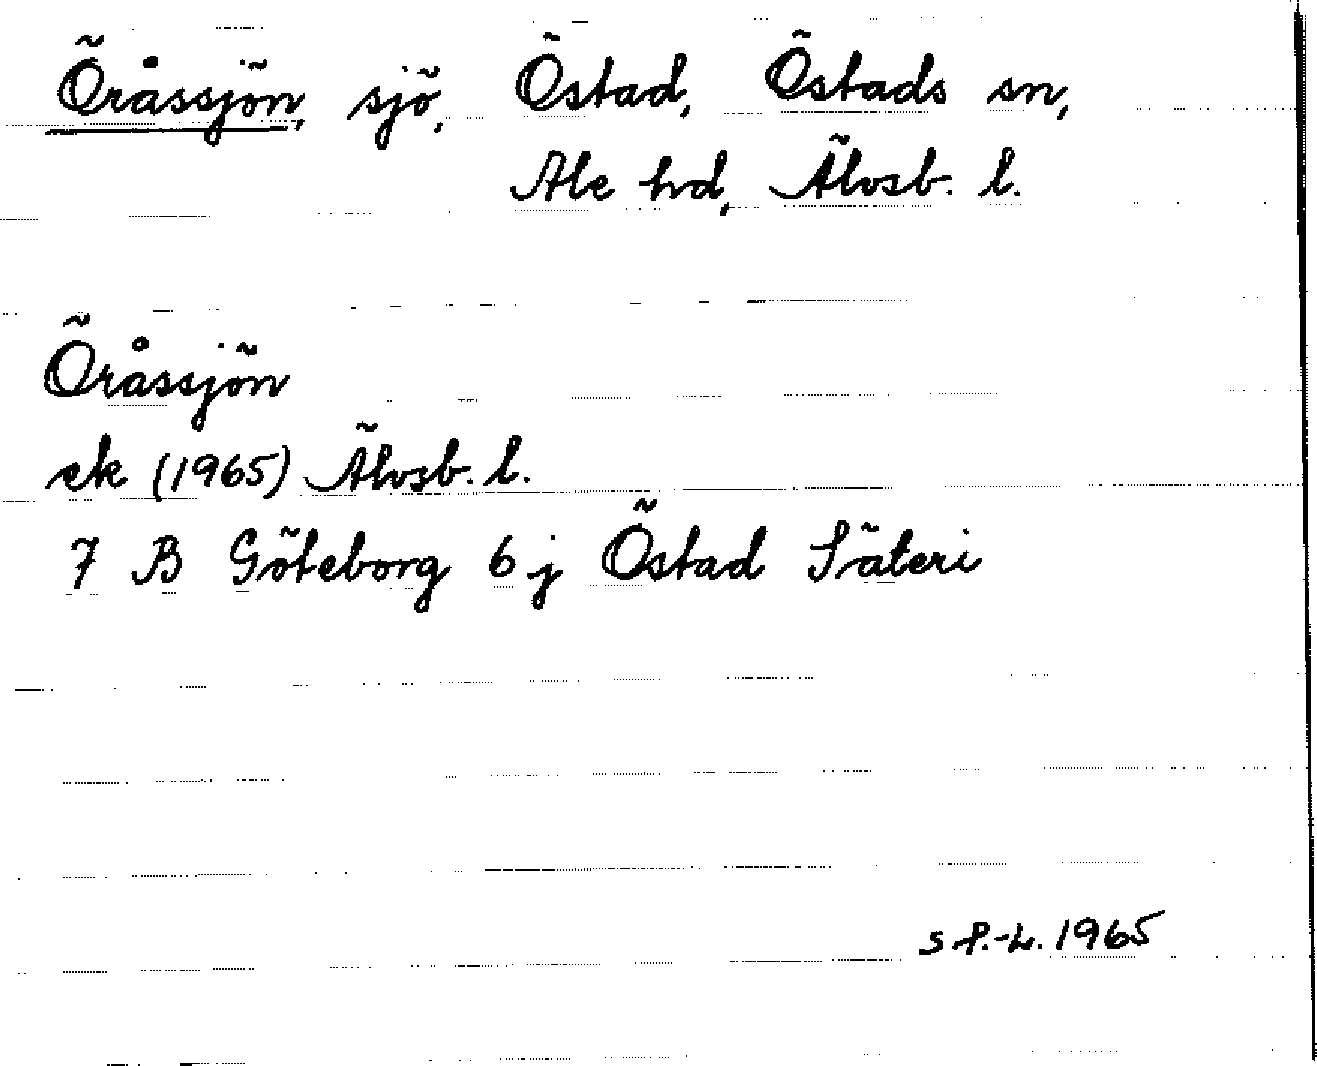 Öråssjön, sjö, Östad, Östads sn,
Ale hd, Älvsb. l.
Öråssjön
ek (1965) Älvsb. l.
7 B Göteborg 6 j Östad Säteri
S P.-L. 1965